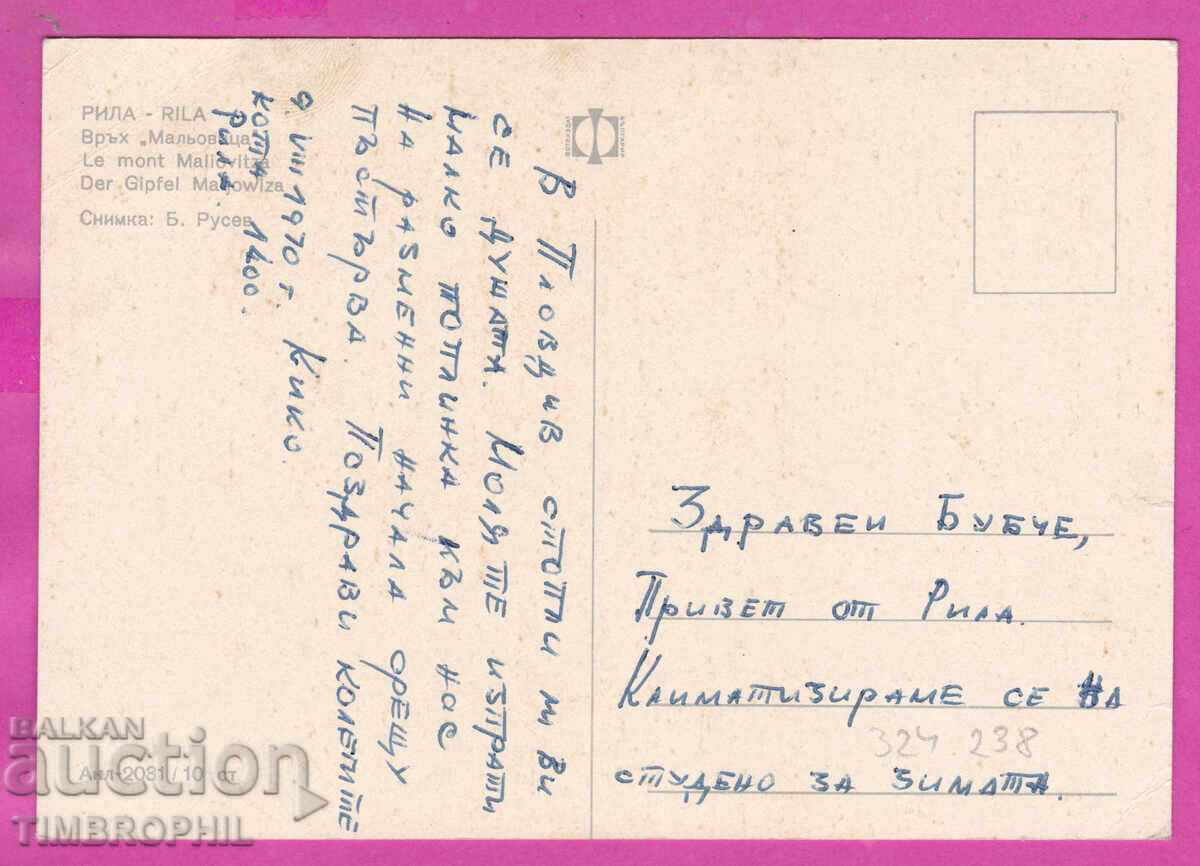 РИЛА - RILA
Връх „Мальовица"
Le mont Maliovitza
Der Gipfel Maljowiza
Снимка: Б. Русев
Здравей Бубче,
Привет от Рила.
Климатизираме се на
студено за зимата.
В Пловдив стопли ви
се душата. Моля те изпрати
малко топлинка към нос
на разменни начала срещу
пъстърва. Поздрави колегите
9.VIII 1970 г. Кико.
кота 1400.
Рила.
324 238
Акл-2081 / 10 ст
BALKAN
auction
TIMBROPHIL